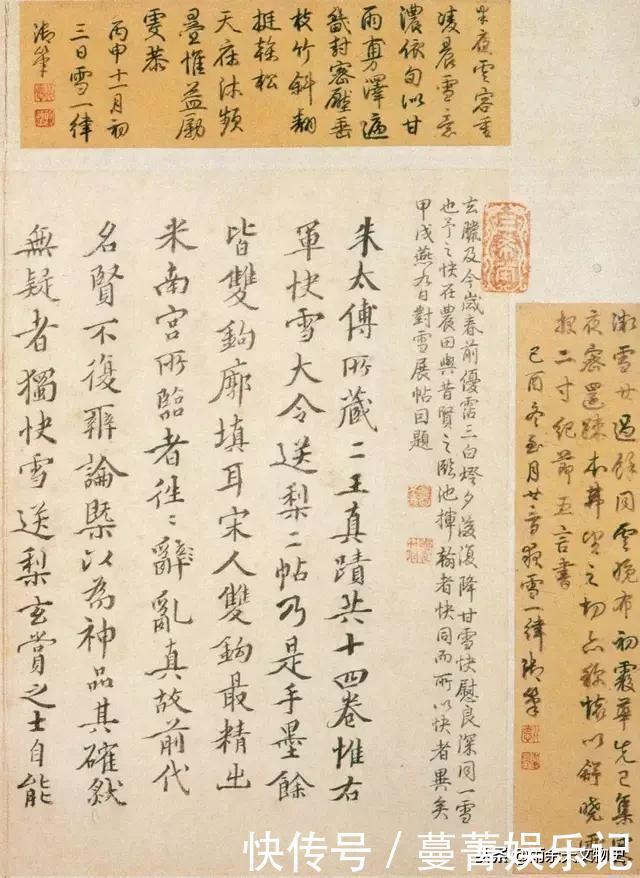 半夜雲容重
凌晨雪意
濃依旬似甘
雨敷澤遍
畿封密壓垂
枝竹斜翻
挺榦松
天庥沐頻
疊惟益勵
虔恭
丙申十一月初
三日雪一律
御筆
同雲晚布初霰華先已集
夜密還疎本弗望之切亦稱懷以舒曉雪
報二寸紀節五言書
己酉冬至月廿夜雪一律御筆
玄臘及今歲春前優霑三白燈夕後復降甘雪快慰良深同一雪
也予之快在農田與昔賢之臨池揮翰者快同而所以快者異矣
甲戌燕九日對雪展帖因題
朱太傅所藏二王真蹟共十四卷惟右
軍快雪大令送梨二帖乃是手墨餘
皆雙鈎廓填耳宋人雙鈎最精出
米南宮所臨者往々辭亂真故前代
名賢不復辨論槩以為神品其確然
無疑者獨快雪送梨玄賞之士自能
快传号／蔓菁娱乐记